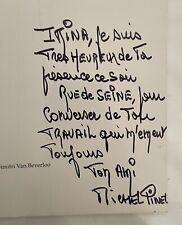 IRINA, Je suis
Très HEUREUX de Ta
présence ce soir
RUE de SEINE, pour
Converser de Ton
TRAVAIL qui m'émeut
Toujours
Ton Ami
Michel PINEL
Dimitri Van Beverloo